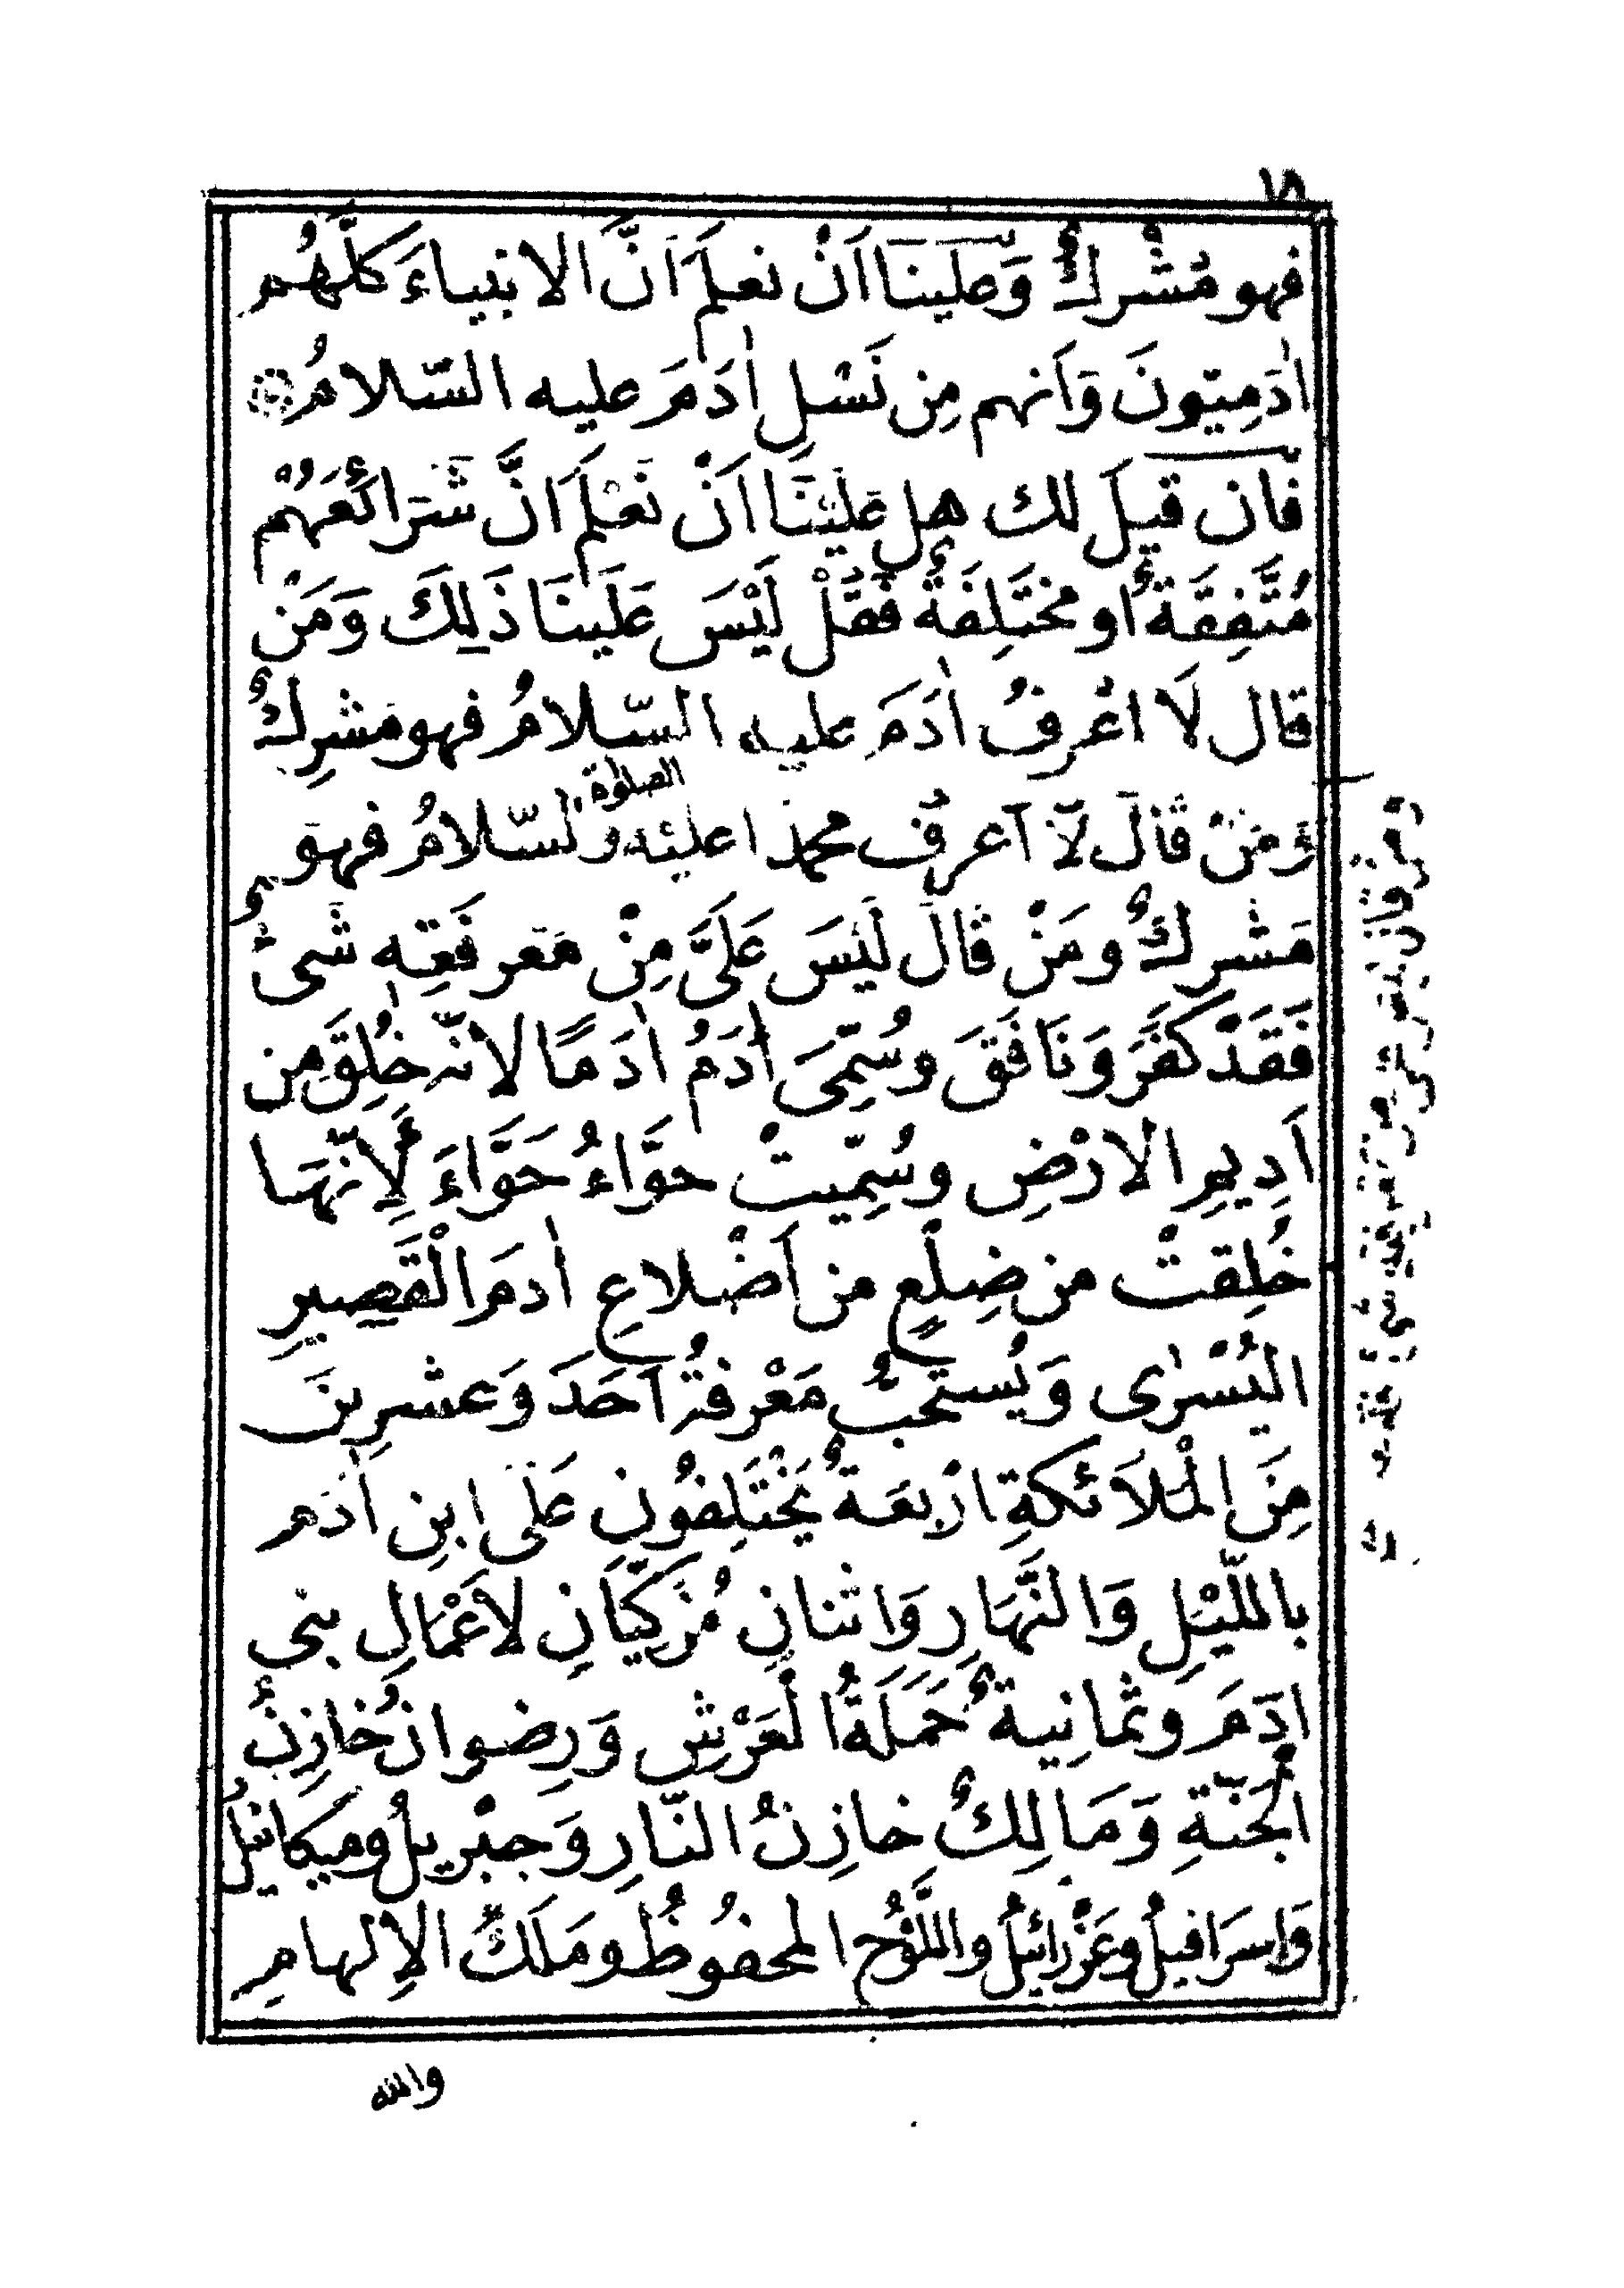 ١٨
فهو مُشْرِكٌ وَعَلَيْنَا اَنْ نعلَمَ اَنَّ الانبياءَ كلَّهُم
اٰدَمِيّونَ وَاَنهم مِن نَسْلِ اٰدَمَ عليه السّلامُ
فاِن قيلَ لك هل عَلَيْنَا اَنْ نَعْلَمَ انَّ شَرَائعَهُمْ
مُتَّفِقَةٌ او مختَلِفَةٌ فَقُلْ لَيْسَ عَلَينَا ذَلِكَ وَمَن
قال لَا اعْرِفُ اٰدَمَ عليه السّلامُ فهو مَشرِكٌ
وَمَنْ قالَ لَا اعرفُ محمدا عليه الصلوٰة والسّلامُ فهو
مَشْرِكٌ ومَنْ قالَ لَيْسَ عَلَىَّ مِنْ مَعرفَتِه شَىْءٌ
فَقَدْ كَفَرَ وَنَافَقَ وسُمِّىَ اٰدَمُ اٰدَمًا لانّه خُلِقَ مِن
اَدِيمِ الارْضِ وسُمِّيتْ حوَّاءُ حَوَّاءَ لِأَنَّهَا
خُلِقتْ من ضِلْعٍ من اَضْلاعِ اٰدمَ الْقَصِيرِ
اليُسْرٰى وَيُستَحَبُّ مَعْرفةُ اَحَدَ وَعشرِينَ
مِنَ الْمَلَائكةِ ارْبعَةٌ يَخْتَلِفُونَ عَلَى ابنِ اٰدَم
باللَّيْلِ وَالنَّهَارِ وَاثنانِ مُزَكِّيَانِ لاَعْمَالِ بنى
اٰدَمَ وثمانِيةٌ حَمَلَةُ الْعَرْشِ وَرِضوانُ خازِنُ
الْجَنّةِ وَمَالِكٌ خازِنُ النَّارِ وَجبْريلُ وميكائيلُ
وَاِسرَافيلُ وعَزْرائيلُ واللَّوْحُ المحفُوظُ ومَلَكُ الاِلهامِ
والله